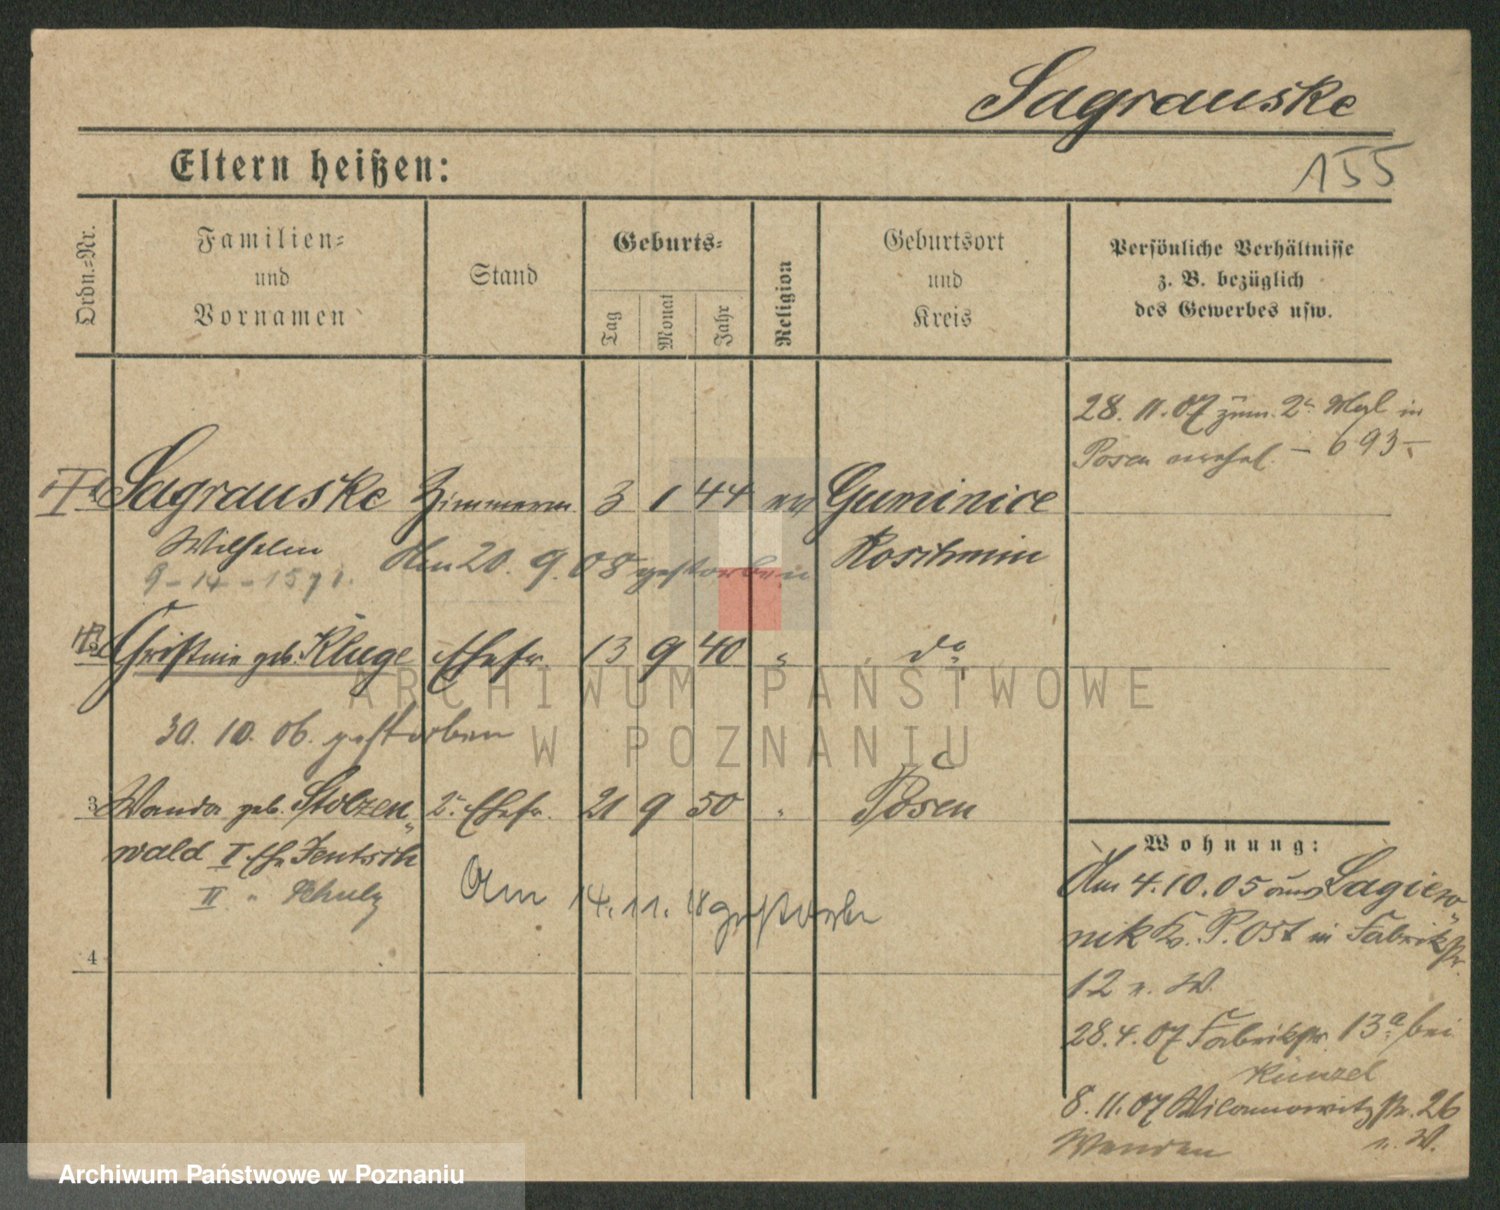 Sagrauske
155
Eltern heißen:
Ordn.=Nr.
Familien=
und
Vornamen
Stand
Geburts=
Tag
Monat
Jahr
Religion
Geburtsort
und
Kreis
Persönliche Verhältnisse
z. B. bezüglich
des Gewerbes usw.
28. 11. 07 zum 2 in
Posen 693
Sagrauske Zimmerm. 3 1 44 ev Guminice
Wilhelm Am 20. 9. 08 gestorben Koschmin
9 - 14 - 1571.
Christine geb. Kluge Ehefr. 13 9 40 " do
30. 10. 06. gestorben
3 Wanda geb. Stolzen= 2. Ehefr. 21 9 50 " Posen
wald I Ehe Jentsch
II " Schulz
Am 14. 11. 18 gestorben
4
Wohnung:
Am 4. 10. 05 aus Lagiew=
nik Kr. P. Ost in Fabrikstr.
12 n. W.
28. 4. 07 Fabrikstr. 13a bei
Kunzel
8. 11. 07 Wilamowitzstr. 26
n. W.
ARCHIWUM PAŃSTWOWE
W POZNANIU
Archiwum Państwowe w Poznaniu